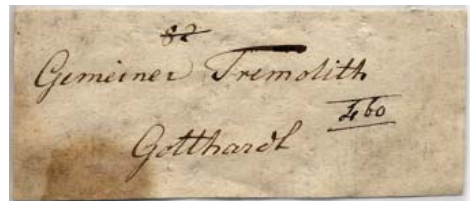 82
Gemeiner Tremolith
460
Gotthardt